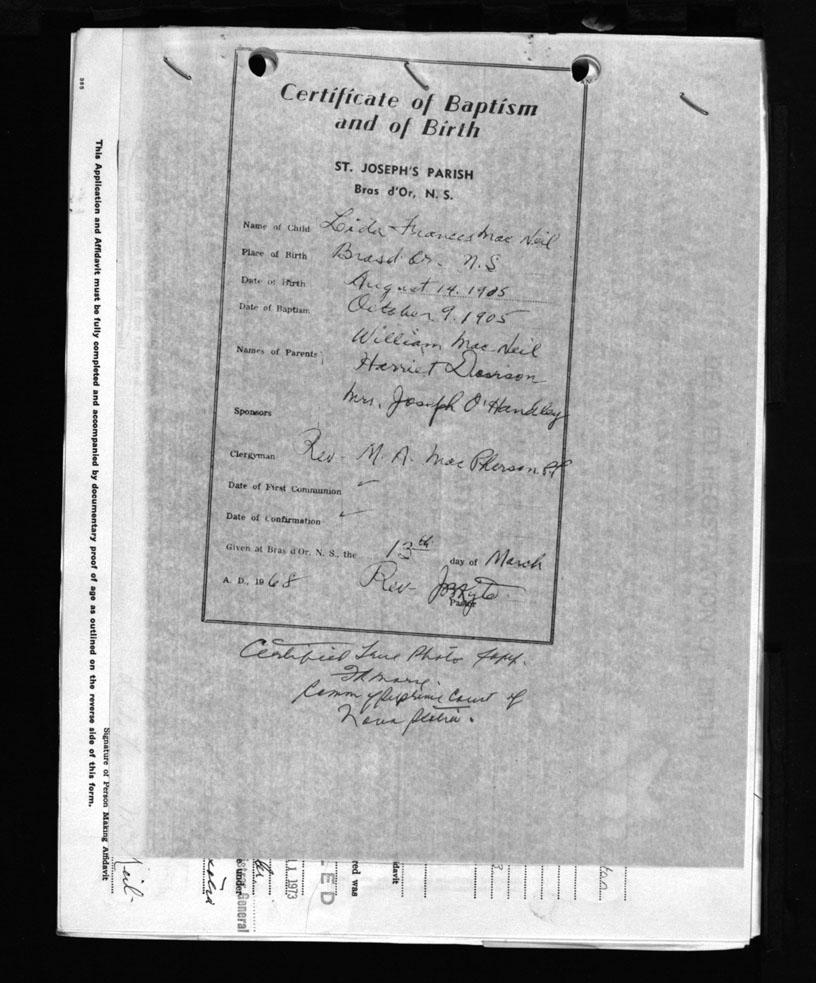 Certificate of Baptism
and of Birth
ST. JOSEPH'S PARISH
Bras d'Or, N. S.
Name of Child Lida Frances Mac Neil
Place of Birth Brasd'Or. N.S
Date of Birth August 14. 1905
Date of Baptism October 9. 1905
William Mac Neil
Names of Parents Harriet
Mrs. Joseph O'Handley
Sponsors
Clergyman Rev. M. A. Mac Pherson P.P
Date of First Communion
Date of Confirmation
Given at Bras d'Or, N. S., the 13th day of March
A. D., 1968 Rev.
Pastor
Certified True Photo Copy.
Comm of Supreme Court of
Nova Scotia.
385
This Application and Affidavit must be fully completed and accompanied by documentary proof of age as outlined on the reverse side of this form.
Signature of Person Making Affidavit
eil
General
e under
1 1973
ED
red was
davit
3